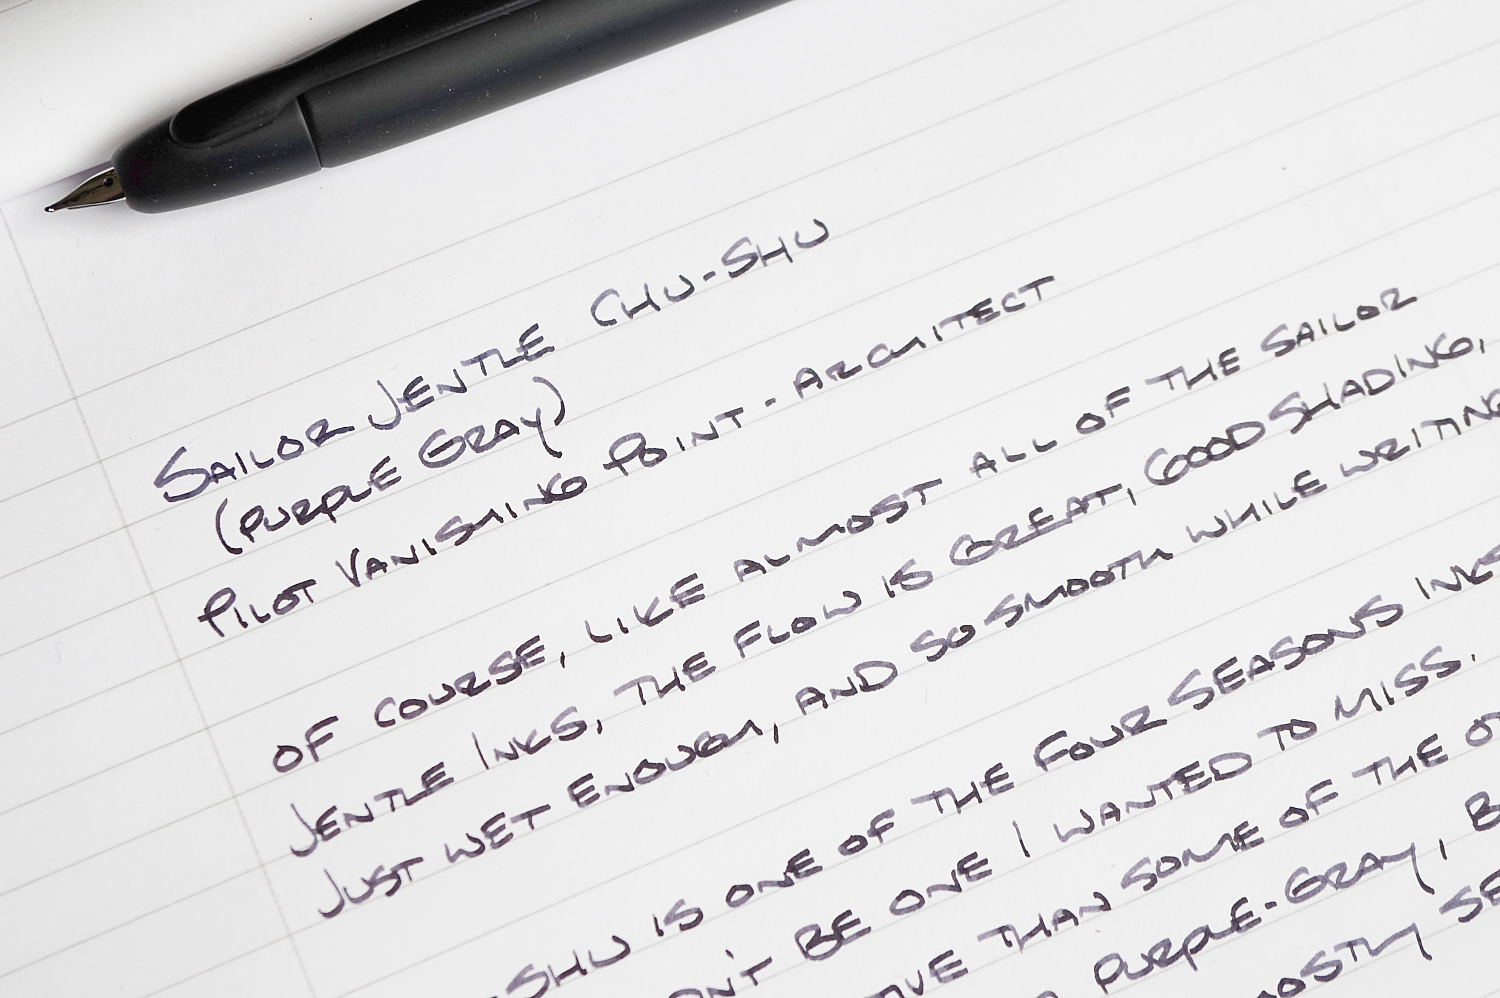 SAILOR JENTLE CHU-SHU
(PURPLE GRAY)
PILOT VANISHING POINT - ARCHITECT
OF COURSE, LIKE ALMOST ALL OF THE SAILOR
JENTLE INKS, THE FLOW IS GREAT, GOOD SHADING,
JUST WET ENOUGH, AND SO SMOOTH WHILE WRITING
SHU IS ONE OF THE FOUR SEASONS INKS
BE ONE I WANTED TO MISS.
THAN SOME OF THE
PURPLE-GRAY,